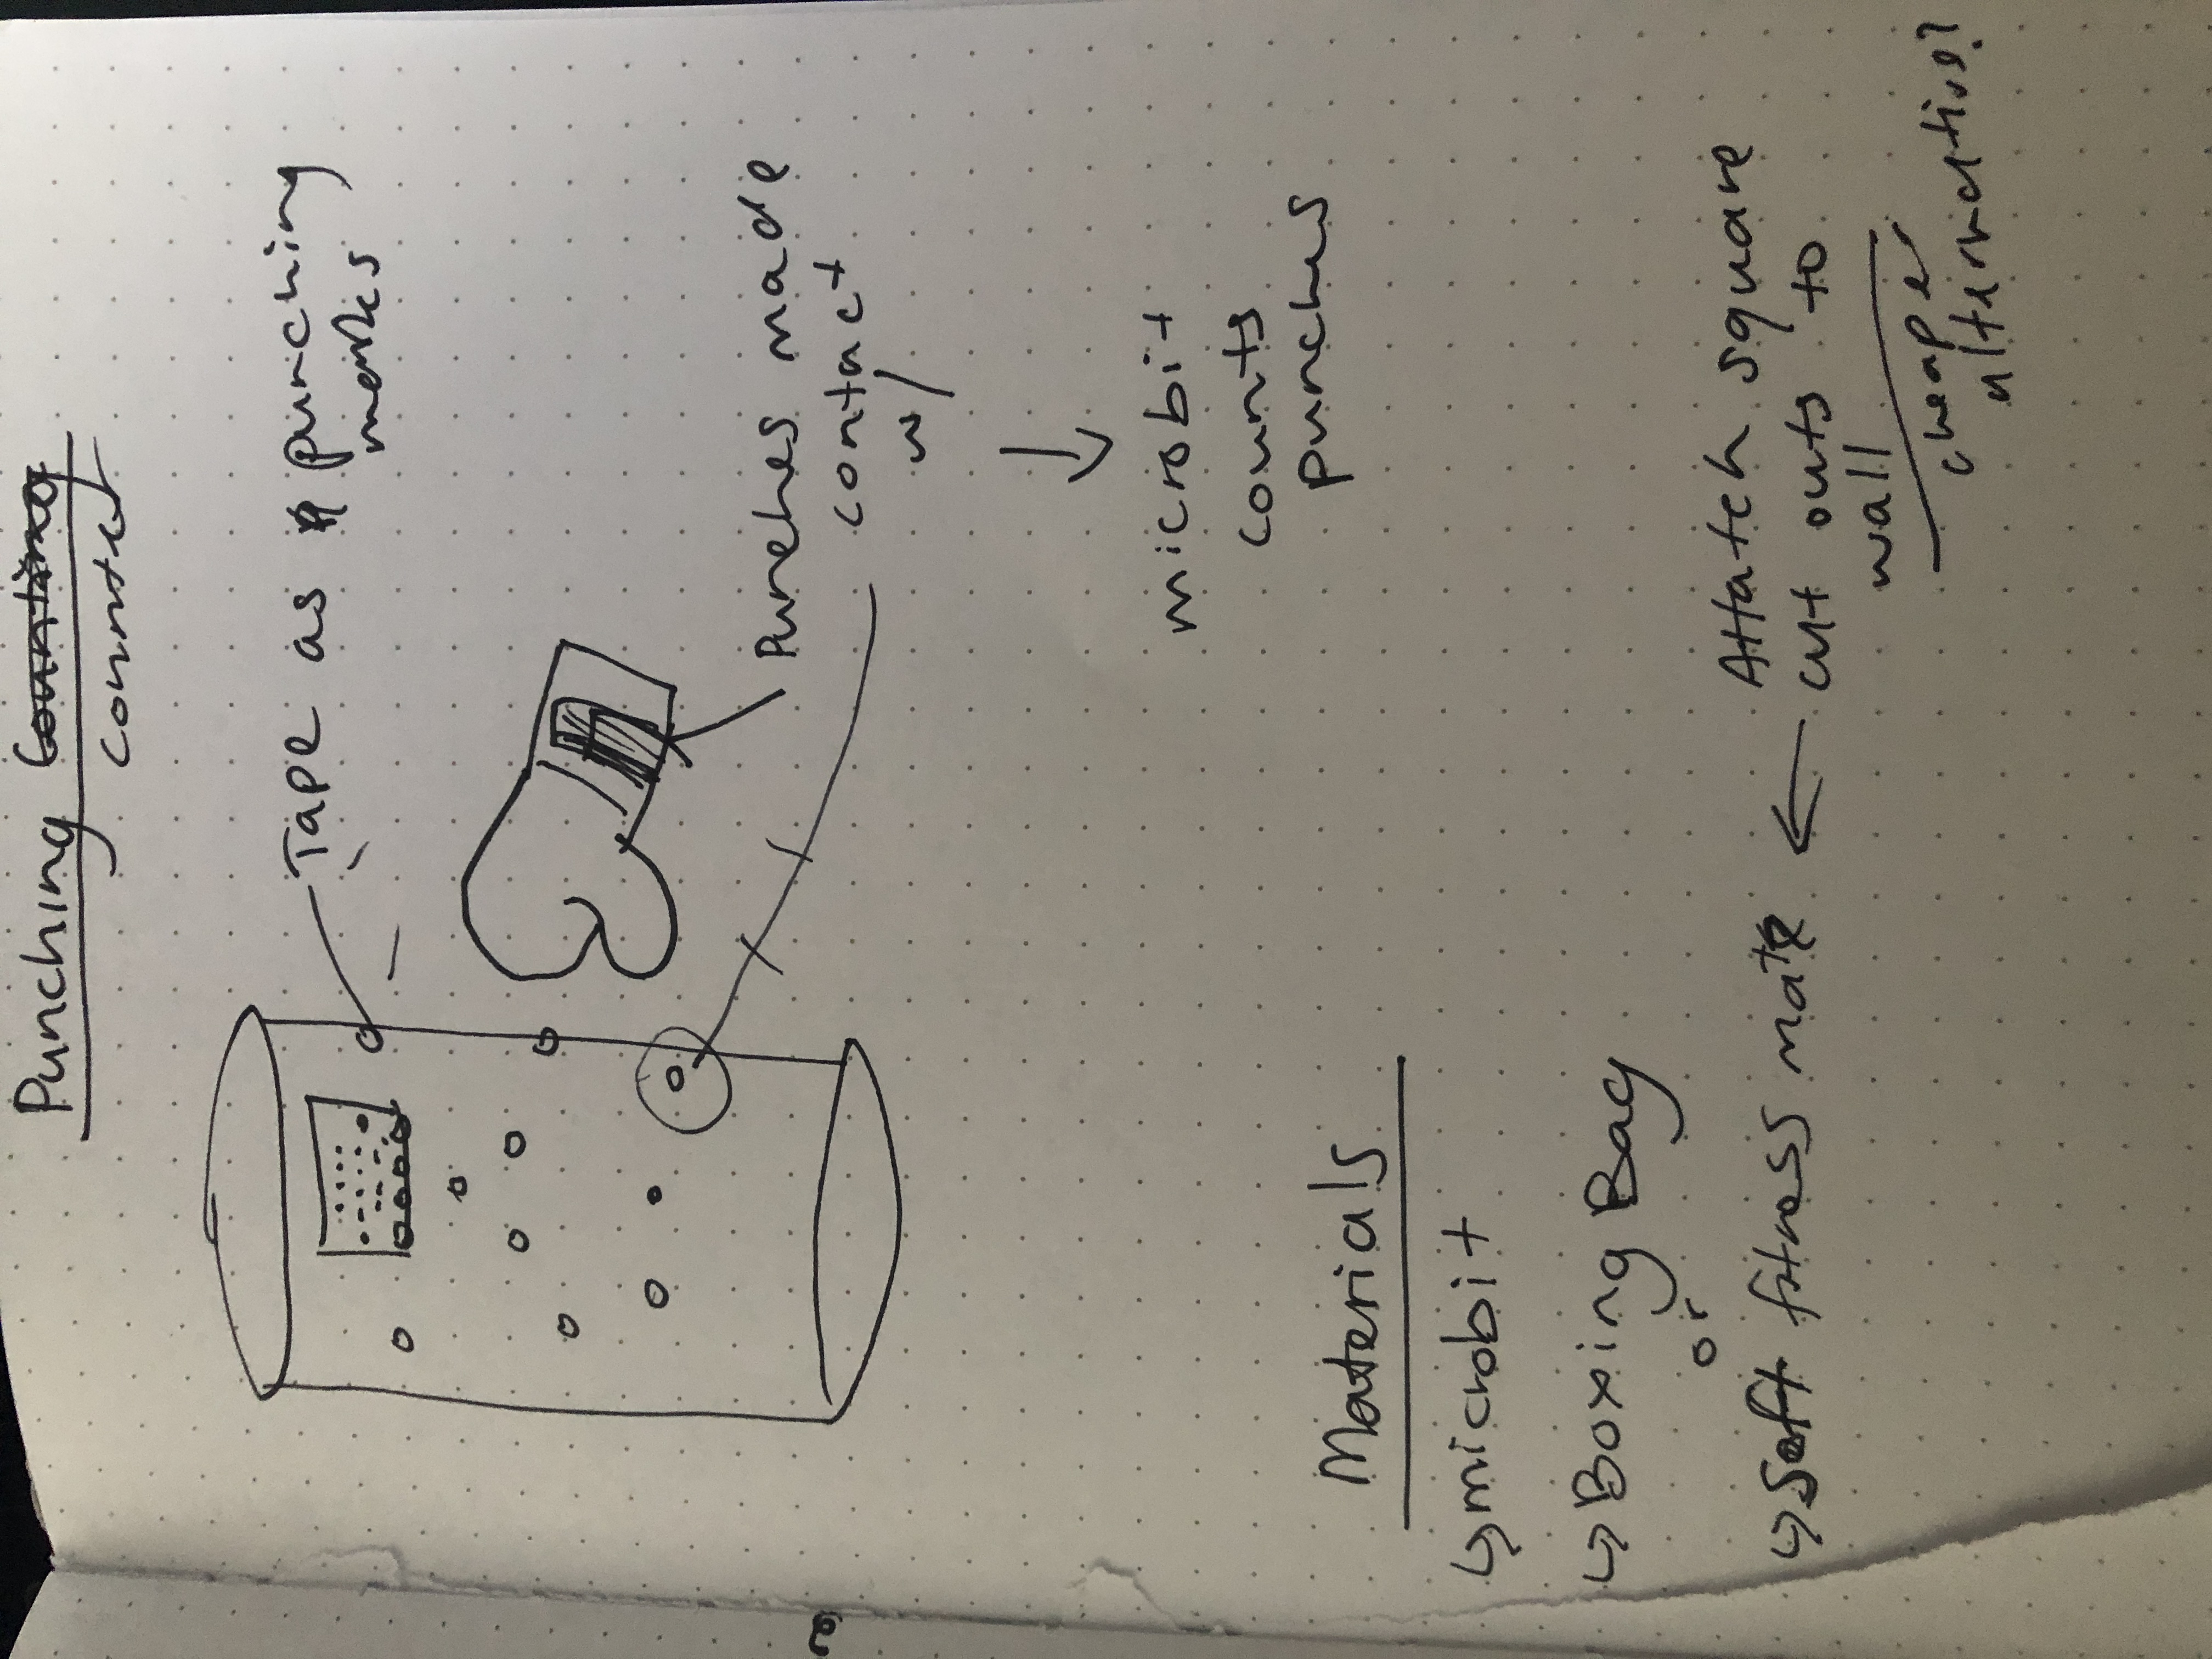 Punching Counting
Counter
Tape as punching
marks
Punches made
contact
w/
microbit
counts
punches
Materials
microbit
Boxing Bag
or
Soft fitness mat
Attatch square
cut outs to
wall
cheaper
alternative?